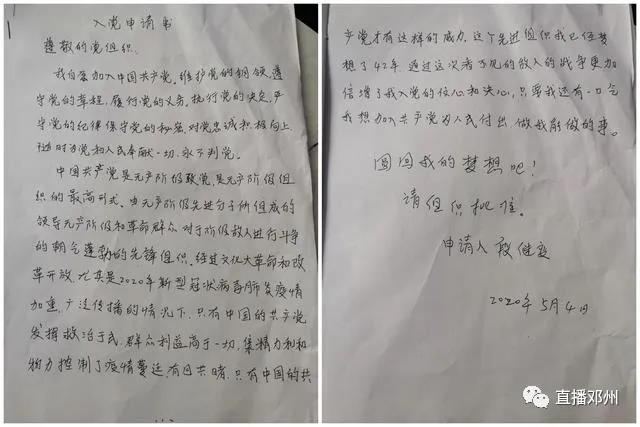 入党申请书
尊敬的党组织:
我自愿加入中国共产党。维护党的纲领,遵
守党的章程,履行党的义务,执行党的决定,严
守党的纪律保守党的秘密,对党忠诚积极向上,
随时为党和人民奉献一切,永不判党。
中国共产党是无产阶级政党,是无产阶级组
织的最高形式。由无产阶级先进分子所组成的
领导无产阶级和革命群众对于阶级敌人进行斗争
的朝气蓬勃的先锋组织。经过文化大革命和改
革开放,尤其是2020年新型冠状病毒肺炎疫情
加重,广泛传播的情况下,只有中国的共产党
发挥救治于民,群众利益高于一切,集精力和和
物力控制了疫情蔓延,有目共睹,只有中国的共
产党才有这样的威力,这个先进组织我已经梦
想了42年,通过这次看不见的敌人的战争更加
倍增了我入党的信心和决心,只要我还有一口气
我想加入共产党为人民付出,做我能做的事。
圆回我的梦想吧!
请组织批准。
申请人
2020年5月4日
直播邓州